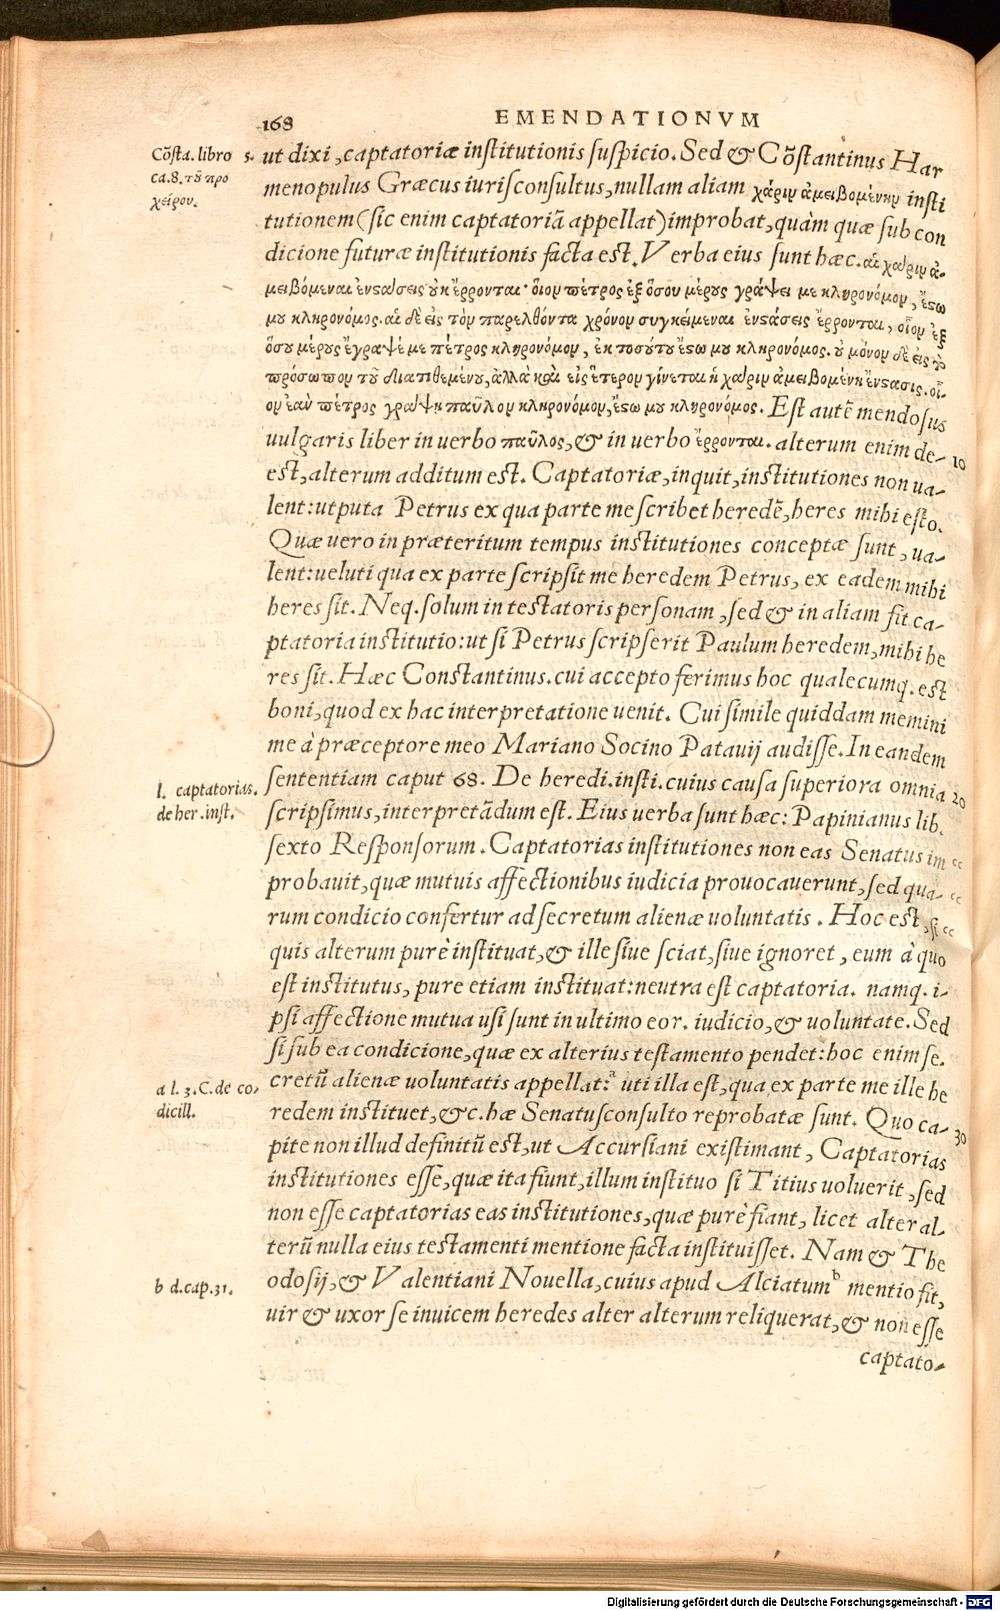 168
EMENDATIONVM
Cõsta. libro 5.
ca. 8. τοῦ προ
χείρου.
ut dixi, captatoriæ institutionis suspicio. Sed & Cõstantinus Har
menopulus Græcus iurisconsultus, nullam aliam χάριν ἀμειβομένην insti
tutionem (sic enim captatoriã appellat) improbat, quàm quæ sub con
dicione futuræ institutionis facta est. Verba eius sunt hæc. αἱ χάριν ἀ-
μειβόμεναι ἐνστάσεις οὐκ ἔρρονται· οἷον πέτρος ἐξ ὅσου μέρους γράψει με κληρονόμον, ἔστω
μου κληρονόμος. αἱ δὲ εἰς τὸν παρελθόντα χρόνον συγκείμεναι ἐνστάσεις ἔρρονται, οἷον ἐξ
ὅσου μέρους ἔγραψέ με πέτρος κληρονόμον, ἐκ τοσούτου ἔστω μου κληρονόμος. οὐ μόνον δὲ εἰς τὸ
πρόσωπον τοῦ διατιθεμένου, ἀλλὰ καὶ εἰς ἕτερον γίνεται ἡ χάριν ἀμειβομένη ἔνστασις. οἷ-
ον ἐὰν πέτρος γράψῃ παῦλον κληρονόμον, ἔστω μου κληρονόμος. Est autē mendosus
uulgaris liber in uerbo παῦλος, & in uerbo ἔρρονται. alterum enim de-
10
est, alterum additum est. Captatoriæ, inquit, institutiones non ua-
lent: utputa Petrus ex qua parte me scribet heredē, heres mihi esto.
Quæ uero in præteritum tempus institutiones conceptæ sunt, ua-
lent: ueluti qua ex parte scripsit me heredem Petrus, ex eadem mihi
heres sit. Neq. solum in testatoris personam, sed & in aliam fit ca-
ptatoria institutio: ut si Petrus scripserit Paulum heredem, mihi he
res sit. Hæc Constantinus. cui accepto ferimus hoc qualecumq. est
boni, quod ex hac interpretatione uenit. Cui simile quiddam memini
me à præceptore meo Mariano Socino Patauij audisse. In eandem
sententiam caput 68. De heredi. insti. cuius causa superiora omnia
20
l. captatorias.
de her. inst.
scripsimus, interpretãdum est. Eius uerba sunt hæc: Papinianus lib.
sexto Responsorum. Captatorias institutiones non eas Senatus im
cc
probauit, quæ mutuis affectionibus iudicia prouocauerunt, sed qua-
cc
rum condicio confertur ad secretum alienæ uoluntatis. Hoc est, si
cc
quis alterum purè instituat, & ille siue sciat, siue ignoret, eum à quo
est institutus, pure etiam instituat: neutra est captatoria. namq. i-
psi affectione mutua usi sunt in ultimo eor. iudicio, & uoluntate. Sed
si sub ea condicione, quæ ex alterius testamento pendet: hoc enim se-
a l. 3. C. de co-
dicill.
cretū alienæ uoluntatis appellat:ᵃ uti illa est, qua ex parte me ille he
redem instituet, &c. hæ Senatusconsulto reprobatæ sunt. Quo ca-
30
pite non illud definitū est, ut Accursiani existimant, Captatorias
institutiones esse, quæ ita fiunt, illum instituo si Titius uoluerit, sed
non esse captatorias eas institutiones, quæ purè fiant, licet alter al
terū nulla eius testamenti mentione facta instituisset. Nam & The
b d. cap. 31.
odosij, & Valentiani Nouella, cuius apud Alciatumᵇ mentio fit,
uir & uxor se inuicem heredes alter alterum reliquerat, & non esse
captato-
Digitalisierung gefördert durch die Deutsche Forschungsgemeinschaft - DFG